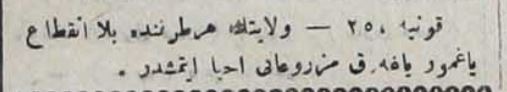 قونیه ، ٢٥ — ولایتك هر طرفنده بلا انقطاع
یاغمور یاغه‌رق مزروعاتی احیا ایتمشدر .